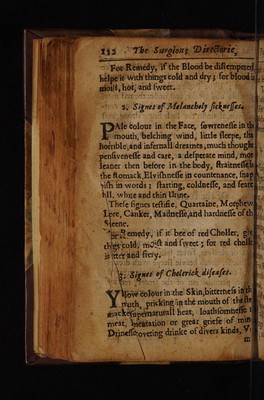 112 The Surgions Directorie,
For Remedy, if the Blood be distempered
helpe it with things cold and dry; for blood is
moist, hot, and sweet.
2. Signes of Melancholy sicknesses.
PAle colour in the Face, sowrenesse in the
mouth, belching wind, little sleepe, tha
horrible, and infernall dreames, much thought
pensivenesse and care, a desperate mind, mor
leaner then before in the body, straitenesse in
the stomack, Elvishnesse in countenance, snap
pish in words; starting, coldnesse, and feare
still, white and thin Urine.
These signes testifie, Quartaine, Morphew
Lepre, Canker, Madnesse, and hardnesse of th
Spleene.
Remedy, if it bee of red Choller, giv
things cold, moist and sweet; for red choller
is bitter and fiery.
3. Signes of Cholerick diseases.
YEllow colour in the Skin, bitternesse in th
mouth, pricking in the mouth of the
stomacke, supernaturall heat, loathsomnesse
meat, or great griefe of min
Drinesse, coveting drinke of divers kinds,